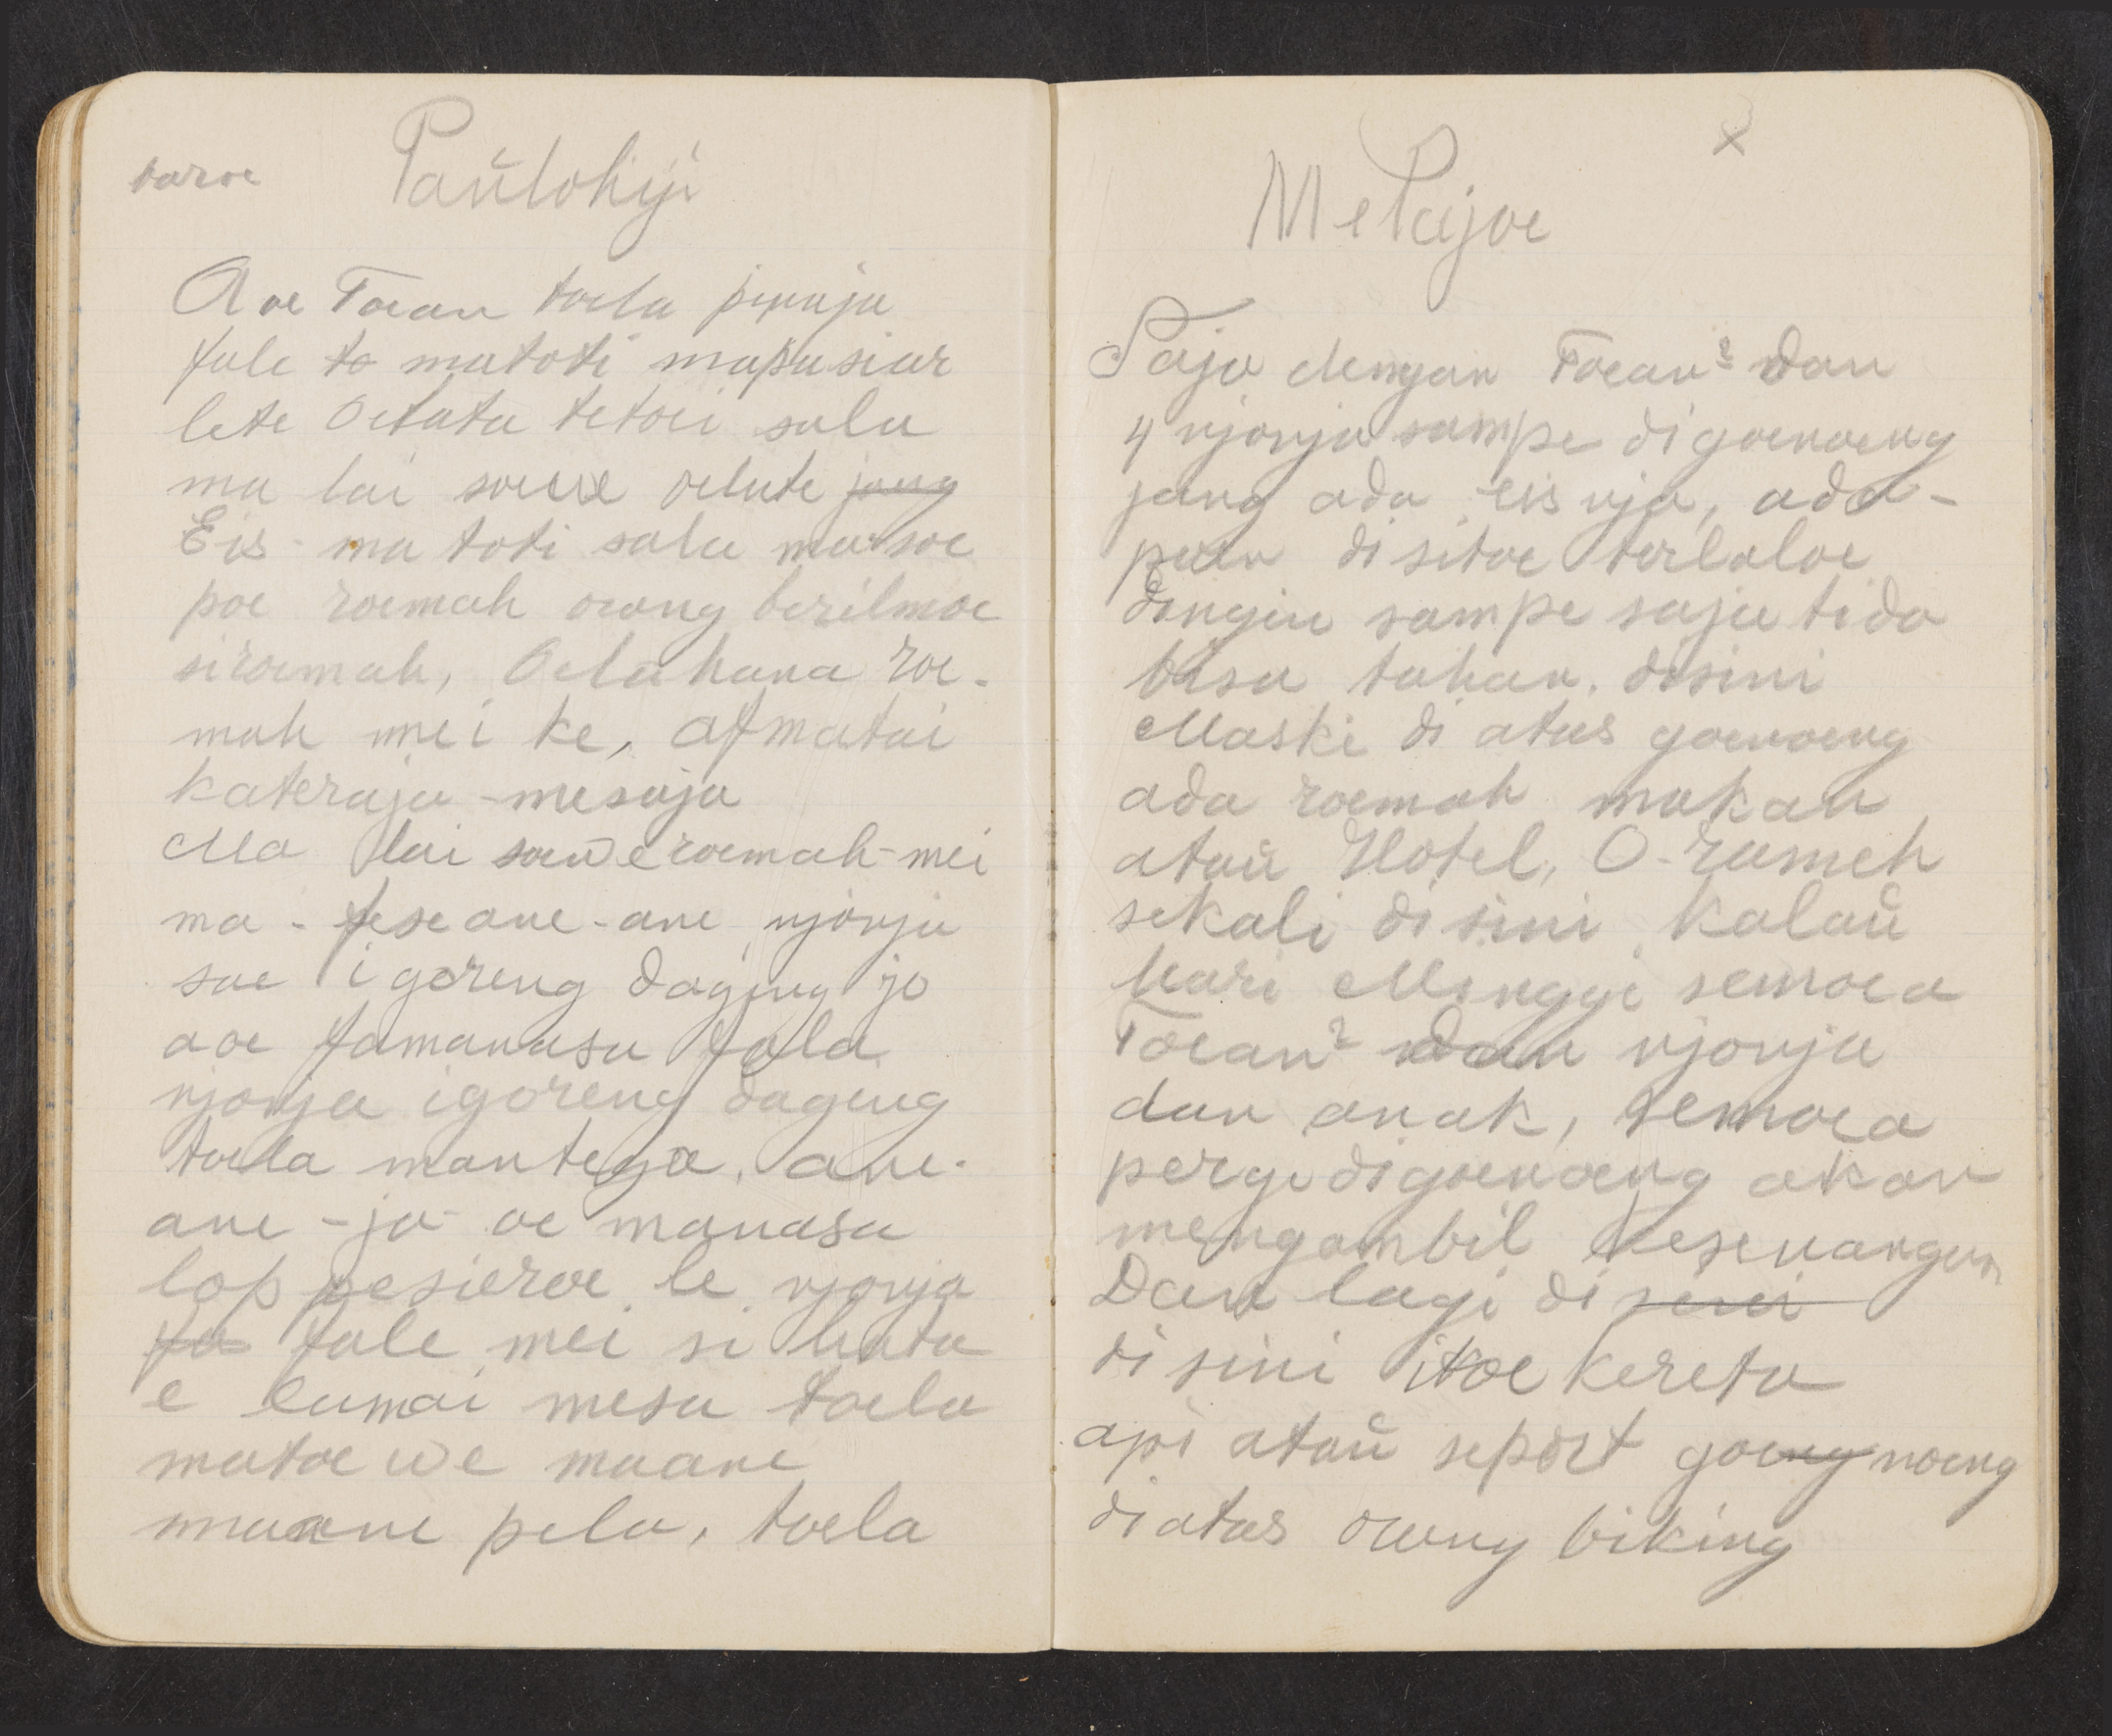 Paŭlohiji
Aoe Toean toela pinaja
fale <del>to</del> matoti mapasiar
lete Oetata tetoei sala
ma lai soewe oelate <del>jang</del>
Eis ma toti sala masoe
poe roemah orang berilmoe
siroemah, Oelahana roe-
mah mei ke, afmatai
kateraja - mesaja
Ma lai soewe roemah-mei
ma-fese ane-ane njonja
soe i goreng daging jo
aoe famanasa fala
njonja igoreng daging
toela mantega, ane-
ane - ja oe manasa
lop pesieroe le njonja
<del>fa</del> fale mei si hata
e lamai mesa toela
matoe we maane
maane pela, toela
Melajoe
Saja dengan Toean² dan
4 njonja sampe digoenoeng
jang ada eis nja, ada-
poen disitoe terlaloe
dingin sampe saja tida
bisa tahan. disini
Maski di atas goenoeng
ada roemah makan
ataŭ Hotel, O-rameh
sekali disini kalaŭ
hari Minggi semoea
Toean² dan njonja
dan anak, semoea
pergi digoenoeng akan
mengambil kesenangan
Dan lagi di <del>sini</del>
disini itoe kereta
api ataŭ seport goe<del>ng</del>noeng
diatas orang biking